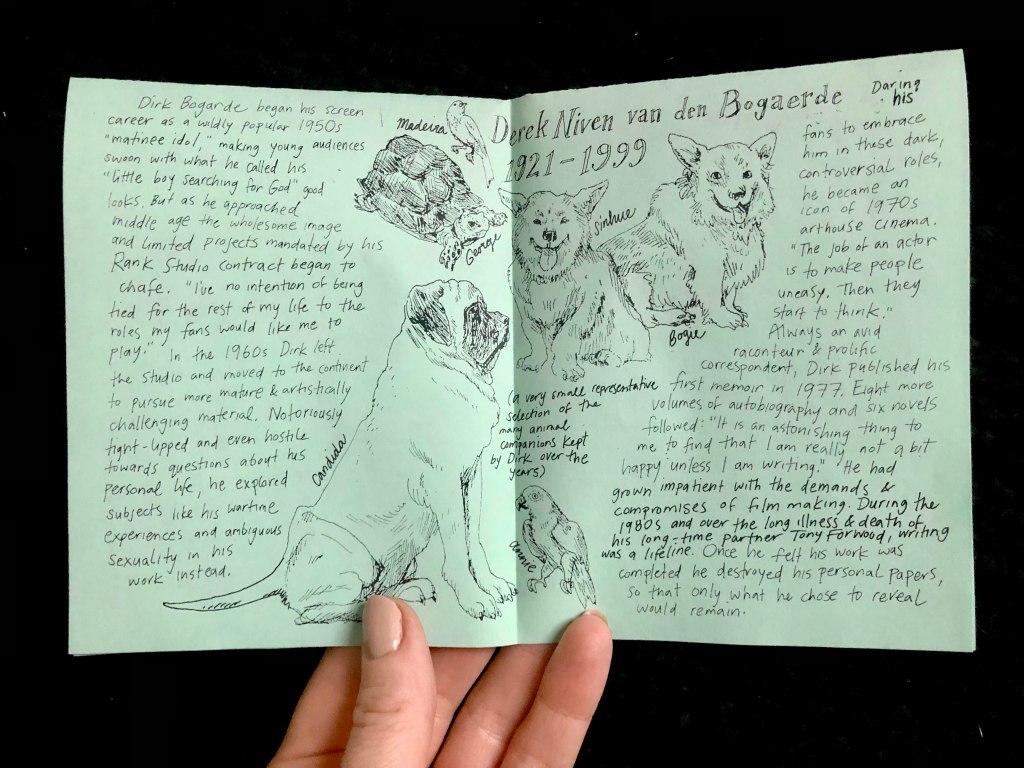 Dirk Bogarde began his screen
career as a wildly popular 1950s
"matinee idol," making young audiences
swoon with what he called his
"little boy searching for God" good
looks. But as he approached
middle age the wholesome image
and limited projects mandated by his
Rank Studio contract began to
chafe. "I've no intention of being
tied for the rest of my life to the
roles my fans would like me to
play." In the 1960s Dirk left
the studio and moved to the continent
to pursue more mature & artistically
challenging material. Notoriously
tight-lipped and even hostile
towards questions about his
personal life, he explored
subjects like his wartime
experiences and ambiguous
sexuality in his
work instead.
Madeira
George
Candida
Derek Niven van den Bogaerde
1921-1999
Sinhue
Bogie
(a very small representative
selection of the
many animal
companions kept
by Dirk over the
years)
Annie
Daring
his
fans to embrace
him in these dark,
controversial roles,
he became an
icon of 1970s
arthouse cinema.
"The job of an actor
is to make people
uneasy. Then they
start to think."
Always an avid
raconteur & prolific
correspondent, Dirk published his
first memoir in 1977. Eight more
volumes of autobiography and six novels
followed: "It is an astonishing thing to
me to find that I am really not a bit
happy unless I am writing." He had
grown impatient with the demands &
compromises of film making. During the
1980s and over the long illness & death of
his long-time partner Tony Forwood, writing
was a lifeline. Once he felt his work was
completed he destroyed his personal papers,
so that only what he chose to reveal
would remain.